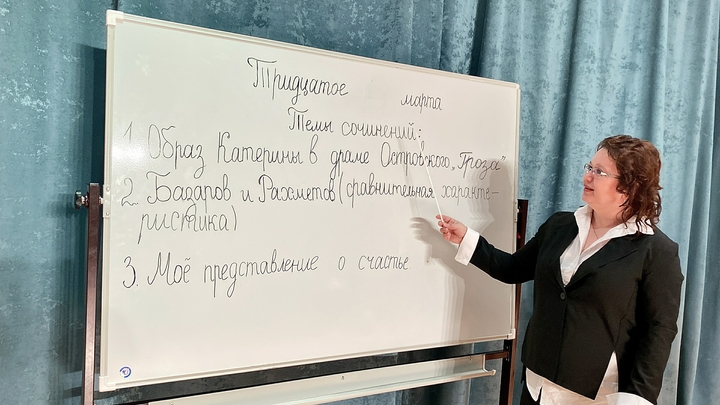 Тридцатое марта
Темы сочинений:
1. Образ Катерины в драме Островского „Гроза"
2. Базаров и Рахметов (сравнительная характе-
ристика)
3. Моё представление о счастье